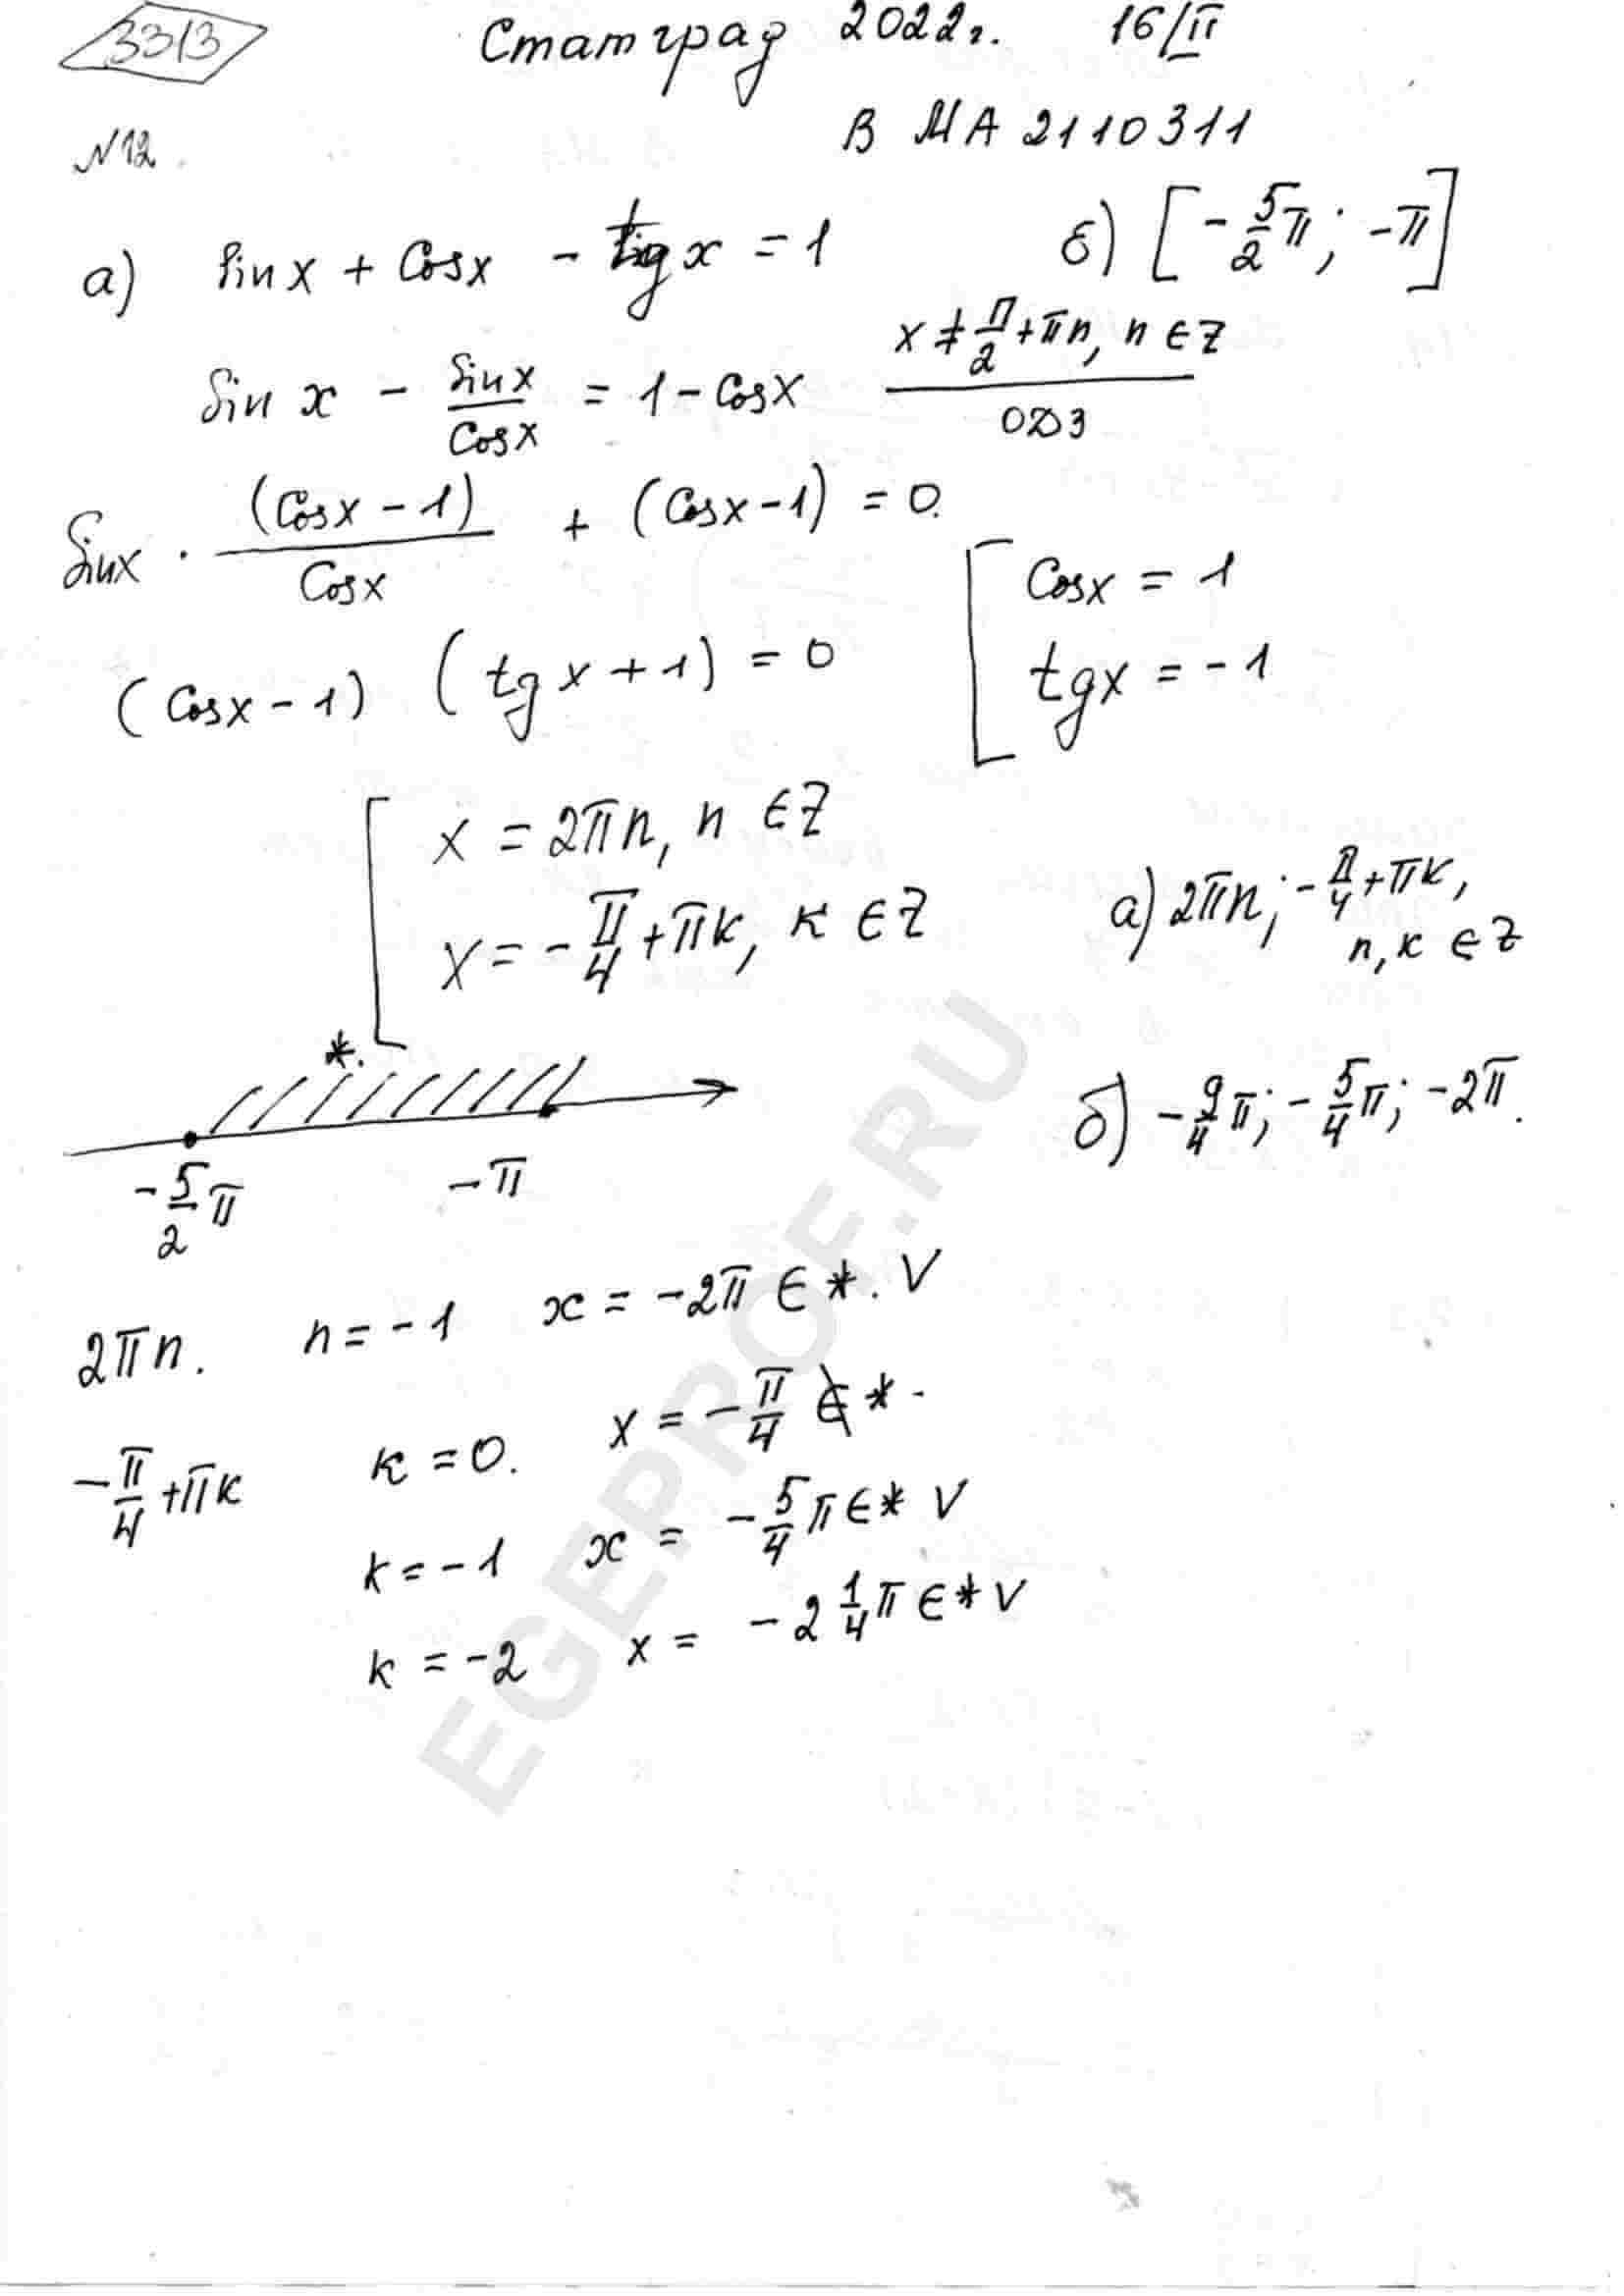 3313
Статград 2022г. 16/II
В МА 2110311
№12.
а) sin x + cos x - tg x = 1
б) [-5/2 π; -π]
sin x - sin x / cos x = 1 - cos x
x ≠ π/2 + πn, n ∈ Z
ОДЗ
sin x · (cos x - 1) / cos x + (cos x - 1) = 0.
(cos x - 1) (tg x + 1) = 0
[ cos x = 1
tg x = -1
[ x = 2πn, n ∈ Z
x = -π/4 + πк, к ∈ Z
а) 2πn; -π/4 + πк,
n, к ∈ Z
*.
-5/2 π
-π
б) -9/4 π; -5/4 π; -2π.
2πn. n = -1 x = -2π ∈ *. V
-π/4 + πк к = 0. x = -π/4 ∉ *.
к = -1 x = -5/4 π ∈ * V
к = -2 x = -2 1/4 π ∈ * V
EGEPROF.RU